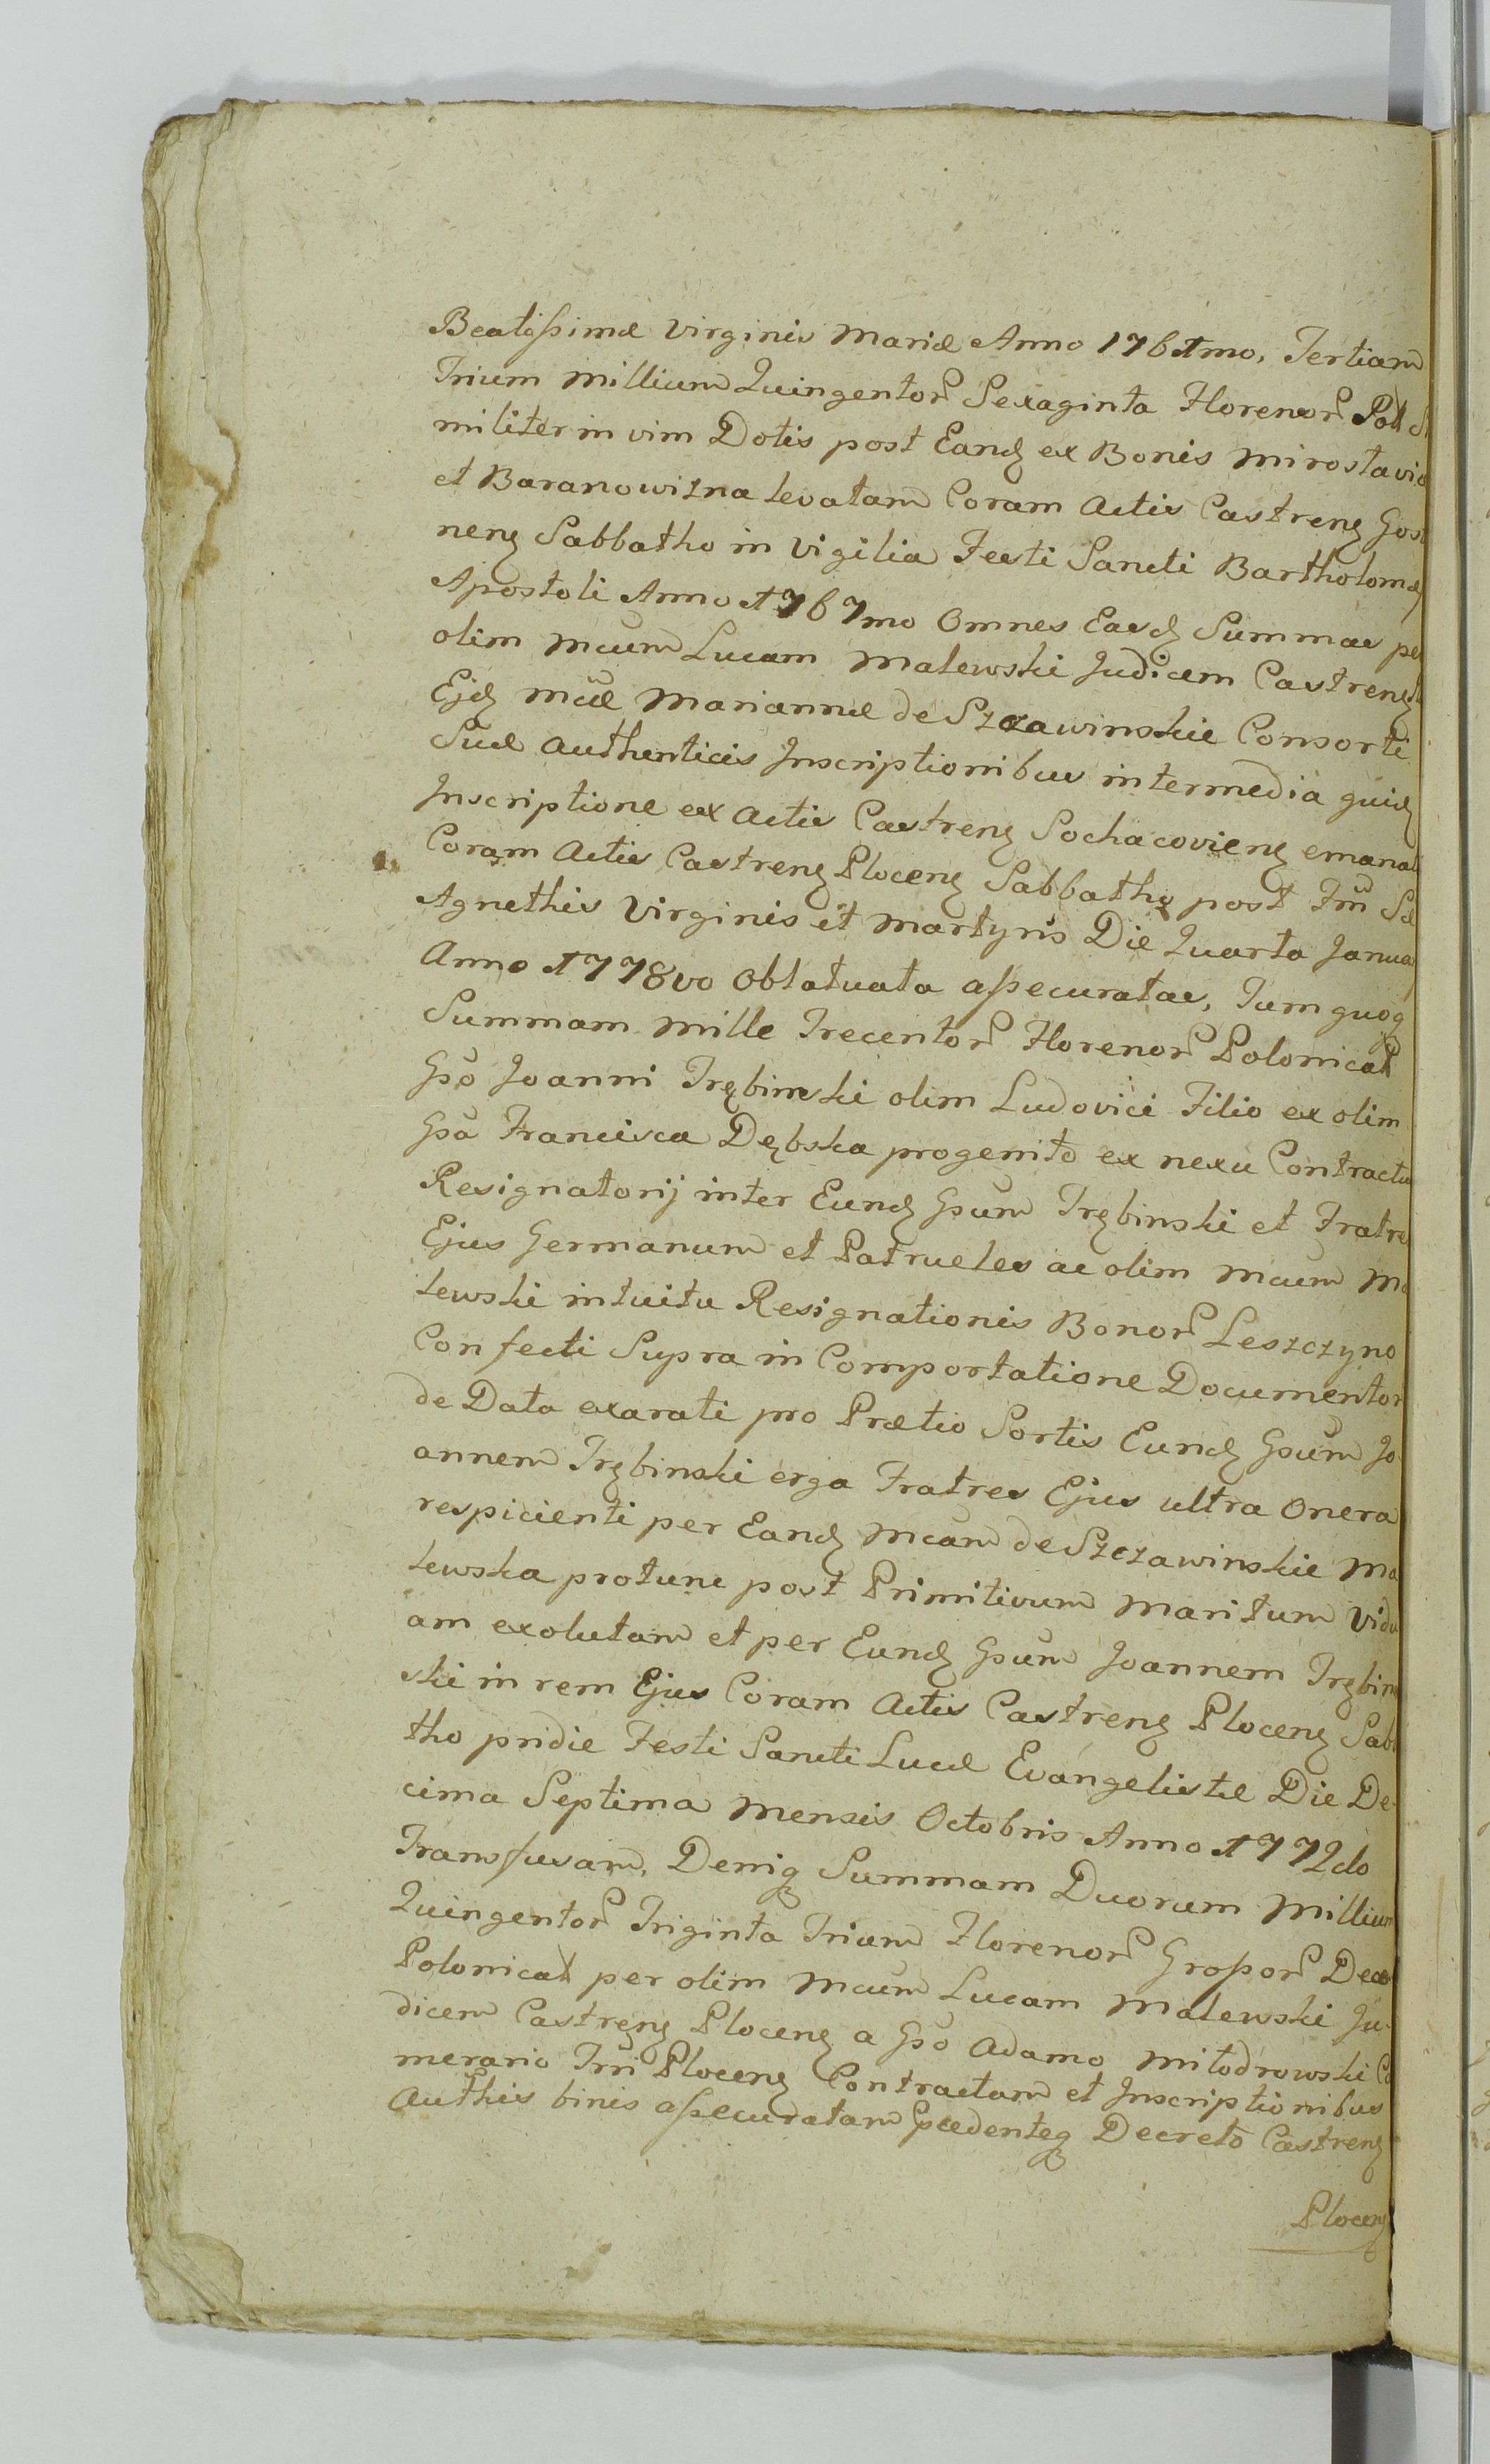 Beatissimæ Virginis Mariæ Anno 1761mo, Tertiam
Trium Millium Quingentor Sexaginta Florenor Pol Si
militer in vim Dotis post Eandꝫ ex Bonis Mirosławic
et Baranowizna levatam Coram Actis Castrenꝫ Gos
nenꝫ Sabbatho in Vigilia Festi Sancti Bartholomæ
Apostoli Anno 1767mo Omnes Easdꝫ Summas per
olim Mcum Lucam Malewski Judicem Castrenꝫ
Ejdꝫ Mcæ Mariannæ de Szczawinskie Consorti
Suæ Authenticis Inscriptionibus intermedia quidꝫ
Inscriptione ex Actis Castrenꝫ Sochacovienꝫ emanat
Coram Actis Castrenꝫ Plocenꝫ Sabbatho post Fm̃ Sæ
Agnethis Virginis et Martyris Die Quarta Janua
Anno 1778vo Oblatuata assecuratas, Tum quoqꝫ
Summam Mille Trecentor Florenor Polonical
Gsõ Joanni Trębinski olim Ludovici Filio ex olim
Gsã Francisca Dębska progenito ex nexu Contractu
Resignatorij inter Eundꝫ Gsum Trębinski et Fratre
Ejus Germanum et Patrueles ac olim Mcum Ma
lewski intuitu Resignationis Bonor Leszczyno
Confecti Supra in Comportatione Documentor
de Data exarati pro Prætio Sortis Eundꝫ Gsum Jo
annem Trębinski erga Fratres Ejus ultra Onera
respicienti per Eandꝫ Mcam de Szczawinskie Ma
lewska protunc post Primitivum Maritum Vidu
am exolutam et per Eundꝫ Gsum Joannem Trębin
ski in rem Ejus Coram Actis Castrenꝫ Plocenꝫ Sab
tho pridie Festi Sancti Lucæ Evangelistæ Die De-
cima Septima Mensis Octobris Anno 1772do
Transfusam, Deniqꝫ Summam Duorum Millium
Quingentor Triginta Trium Florenor Grossor Dece
Polonical per olim Mcum Lucam Malewski Ju-
dicem Castrenꝫ Plocenꝫ a Gsõ Adamo Miłodrowski Ca
merario Trri Plocenꝫ Contractam et Inscriptionibus
Authis binis assecuratam Pcedenteqꝫ Decreto Castrenꝫ
Plocenꝫ